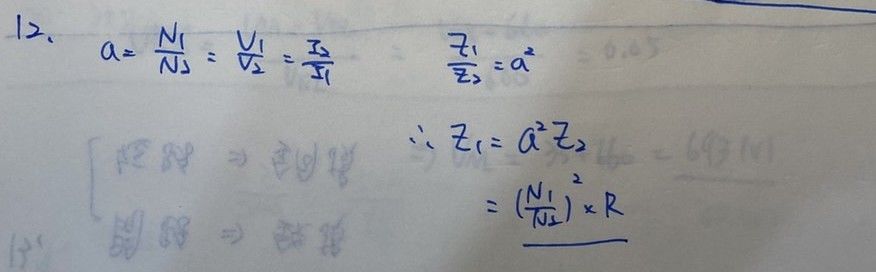 12. a = N₁/N₂ = V₁/V₂ = I₂/I₁    Z₁/Z₂ = a²
∴ Z₁ = a² Z₂
= (N₁/N₂)² × R